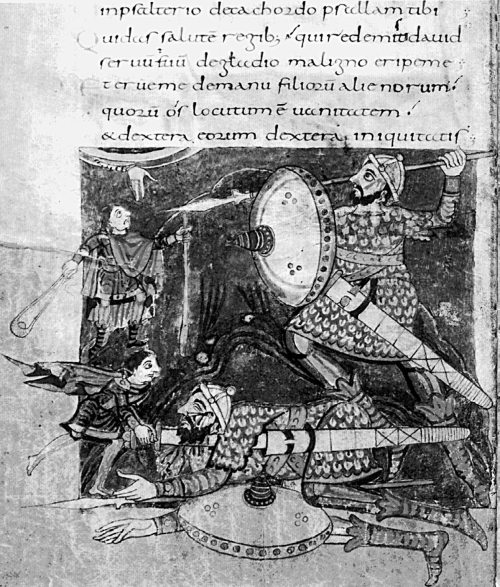 inpsalterio decachordo psallam tibi
Quidas salutē regib; quiredemisti dauid
seruū tuū degladio maligno eripeme
Eterueme demanu filiorū alienorum
quorū os locutum ē uanitatem
&dextera eorum dextera iniquitatis